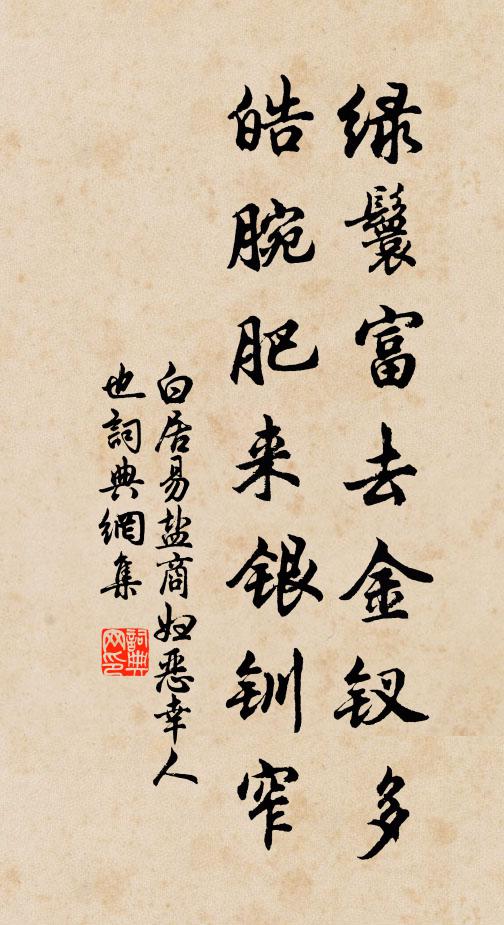 绿鬟富去金钗多
皓腕肥来银钏窄
白居易盐商妇恶幸人
也詞典網集
詞典
网印